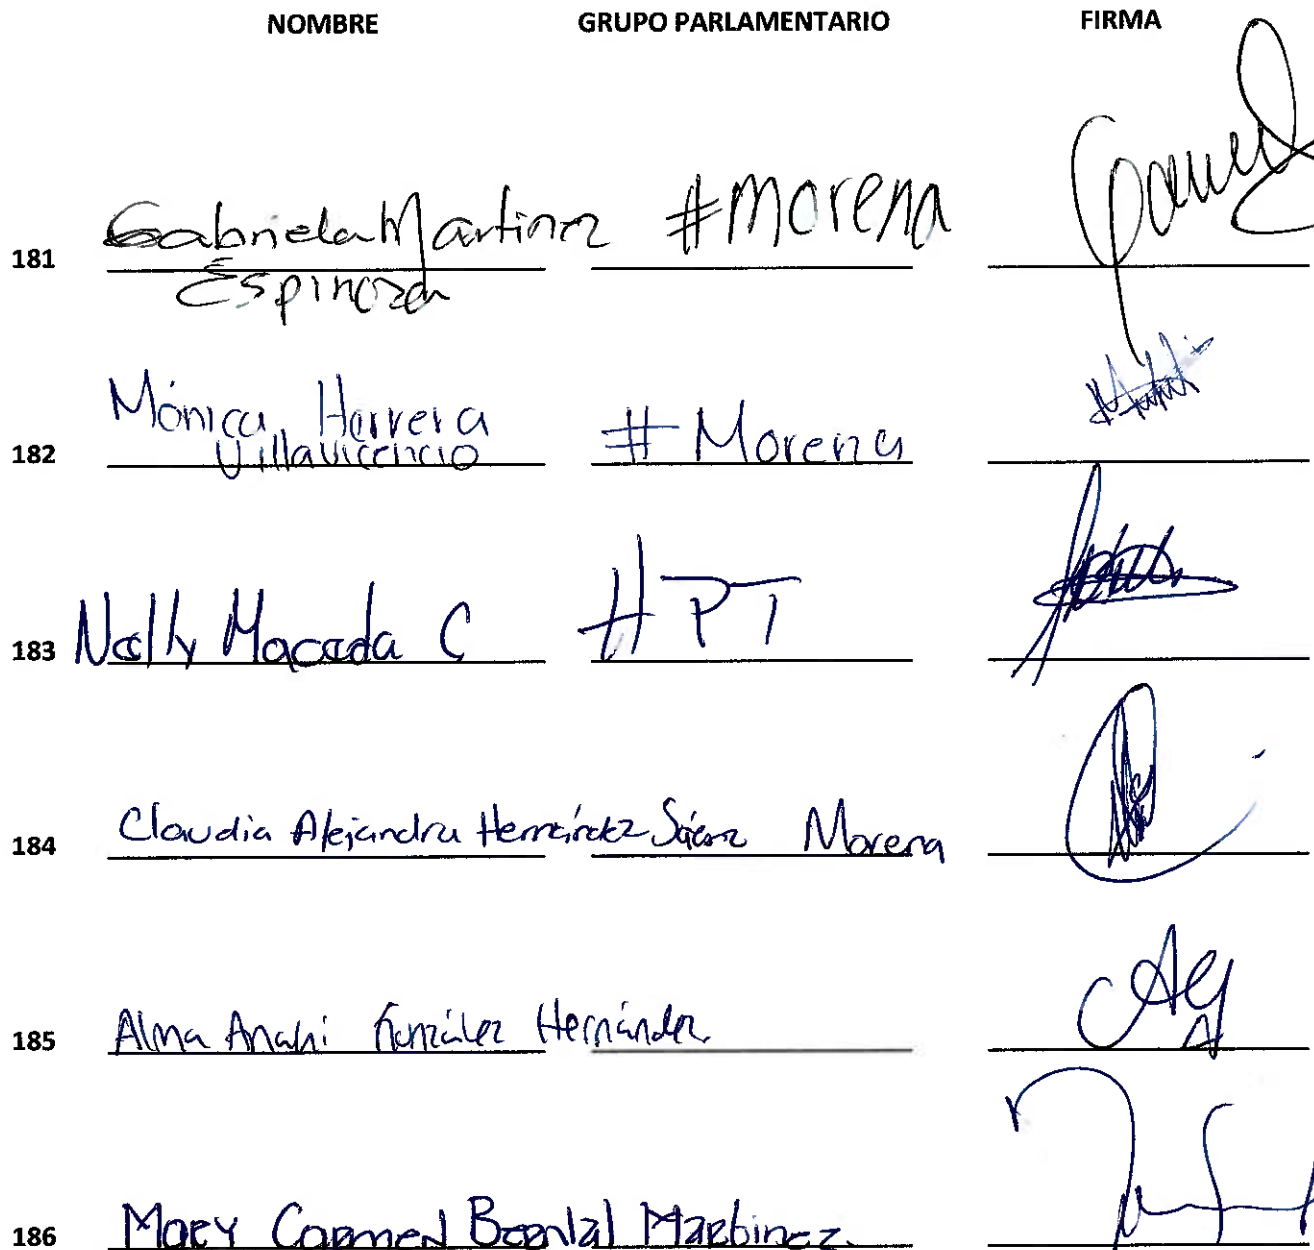 NOMBRE GRUPO PARLAMENTARIO FIRMA
181 Gabriela Martinez #morena
Espinoza
182 Mónica Herrera # Morena
Villavicencio
183 Nelly Maceda C #PT
184 Claudia Alejandra Hernández Sáenz Morena
185 Alma Anahi González Hernández
186 Mary Carmen Bernal Martinez.